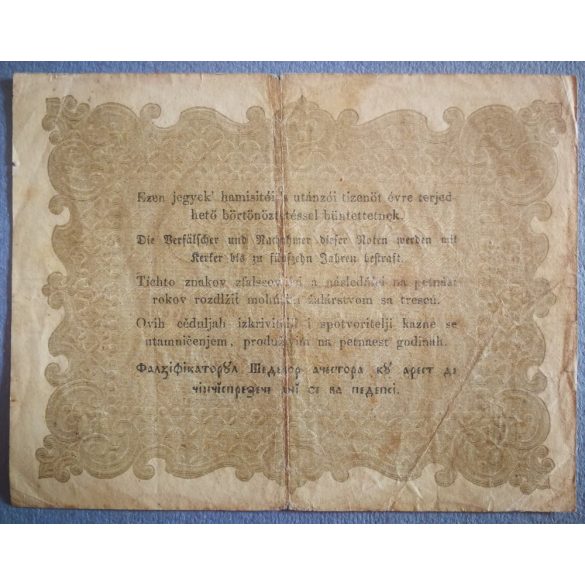 Ezen jegyek' hamisitói 's utánzói tizenöt évre terjed-
hető börtönöztetéssel büntettetnek.
Die Verfälscher und Nachahmer dieser Noten werden mit
Kerker bis zu fünfzehn Jahren bestraft.
Tichto znakov zfalšovníci a následníci na petnást
rokov rozdlžit žalárstvom sa trescú.
Ovih céduljah i spotvoritelji kazne se
utamničenjem, na petnaest godinah.
ачестора кȣ арест де
чінчіспрезече ані се ва педепсі.